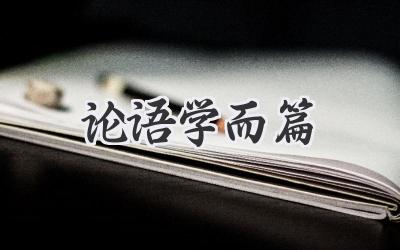 论语学而篇